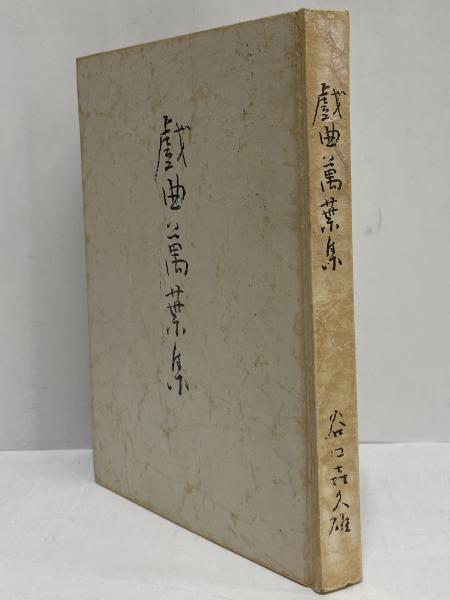 戯曲萬葉集
戯曲萬葉集
谷口喜久雄